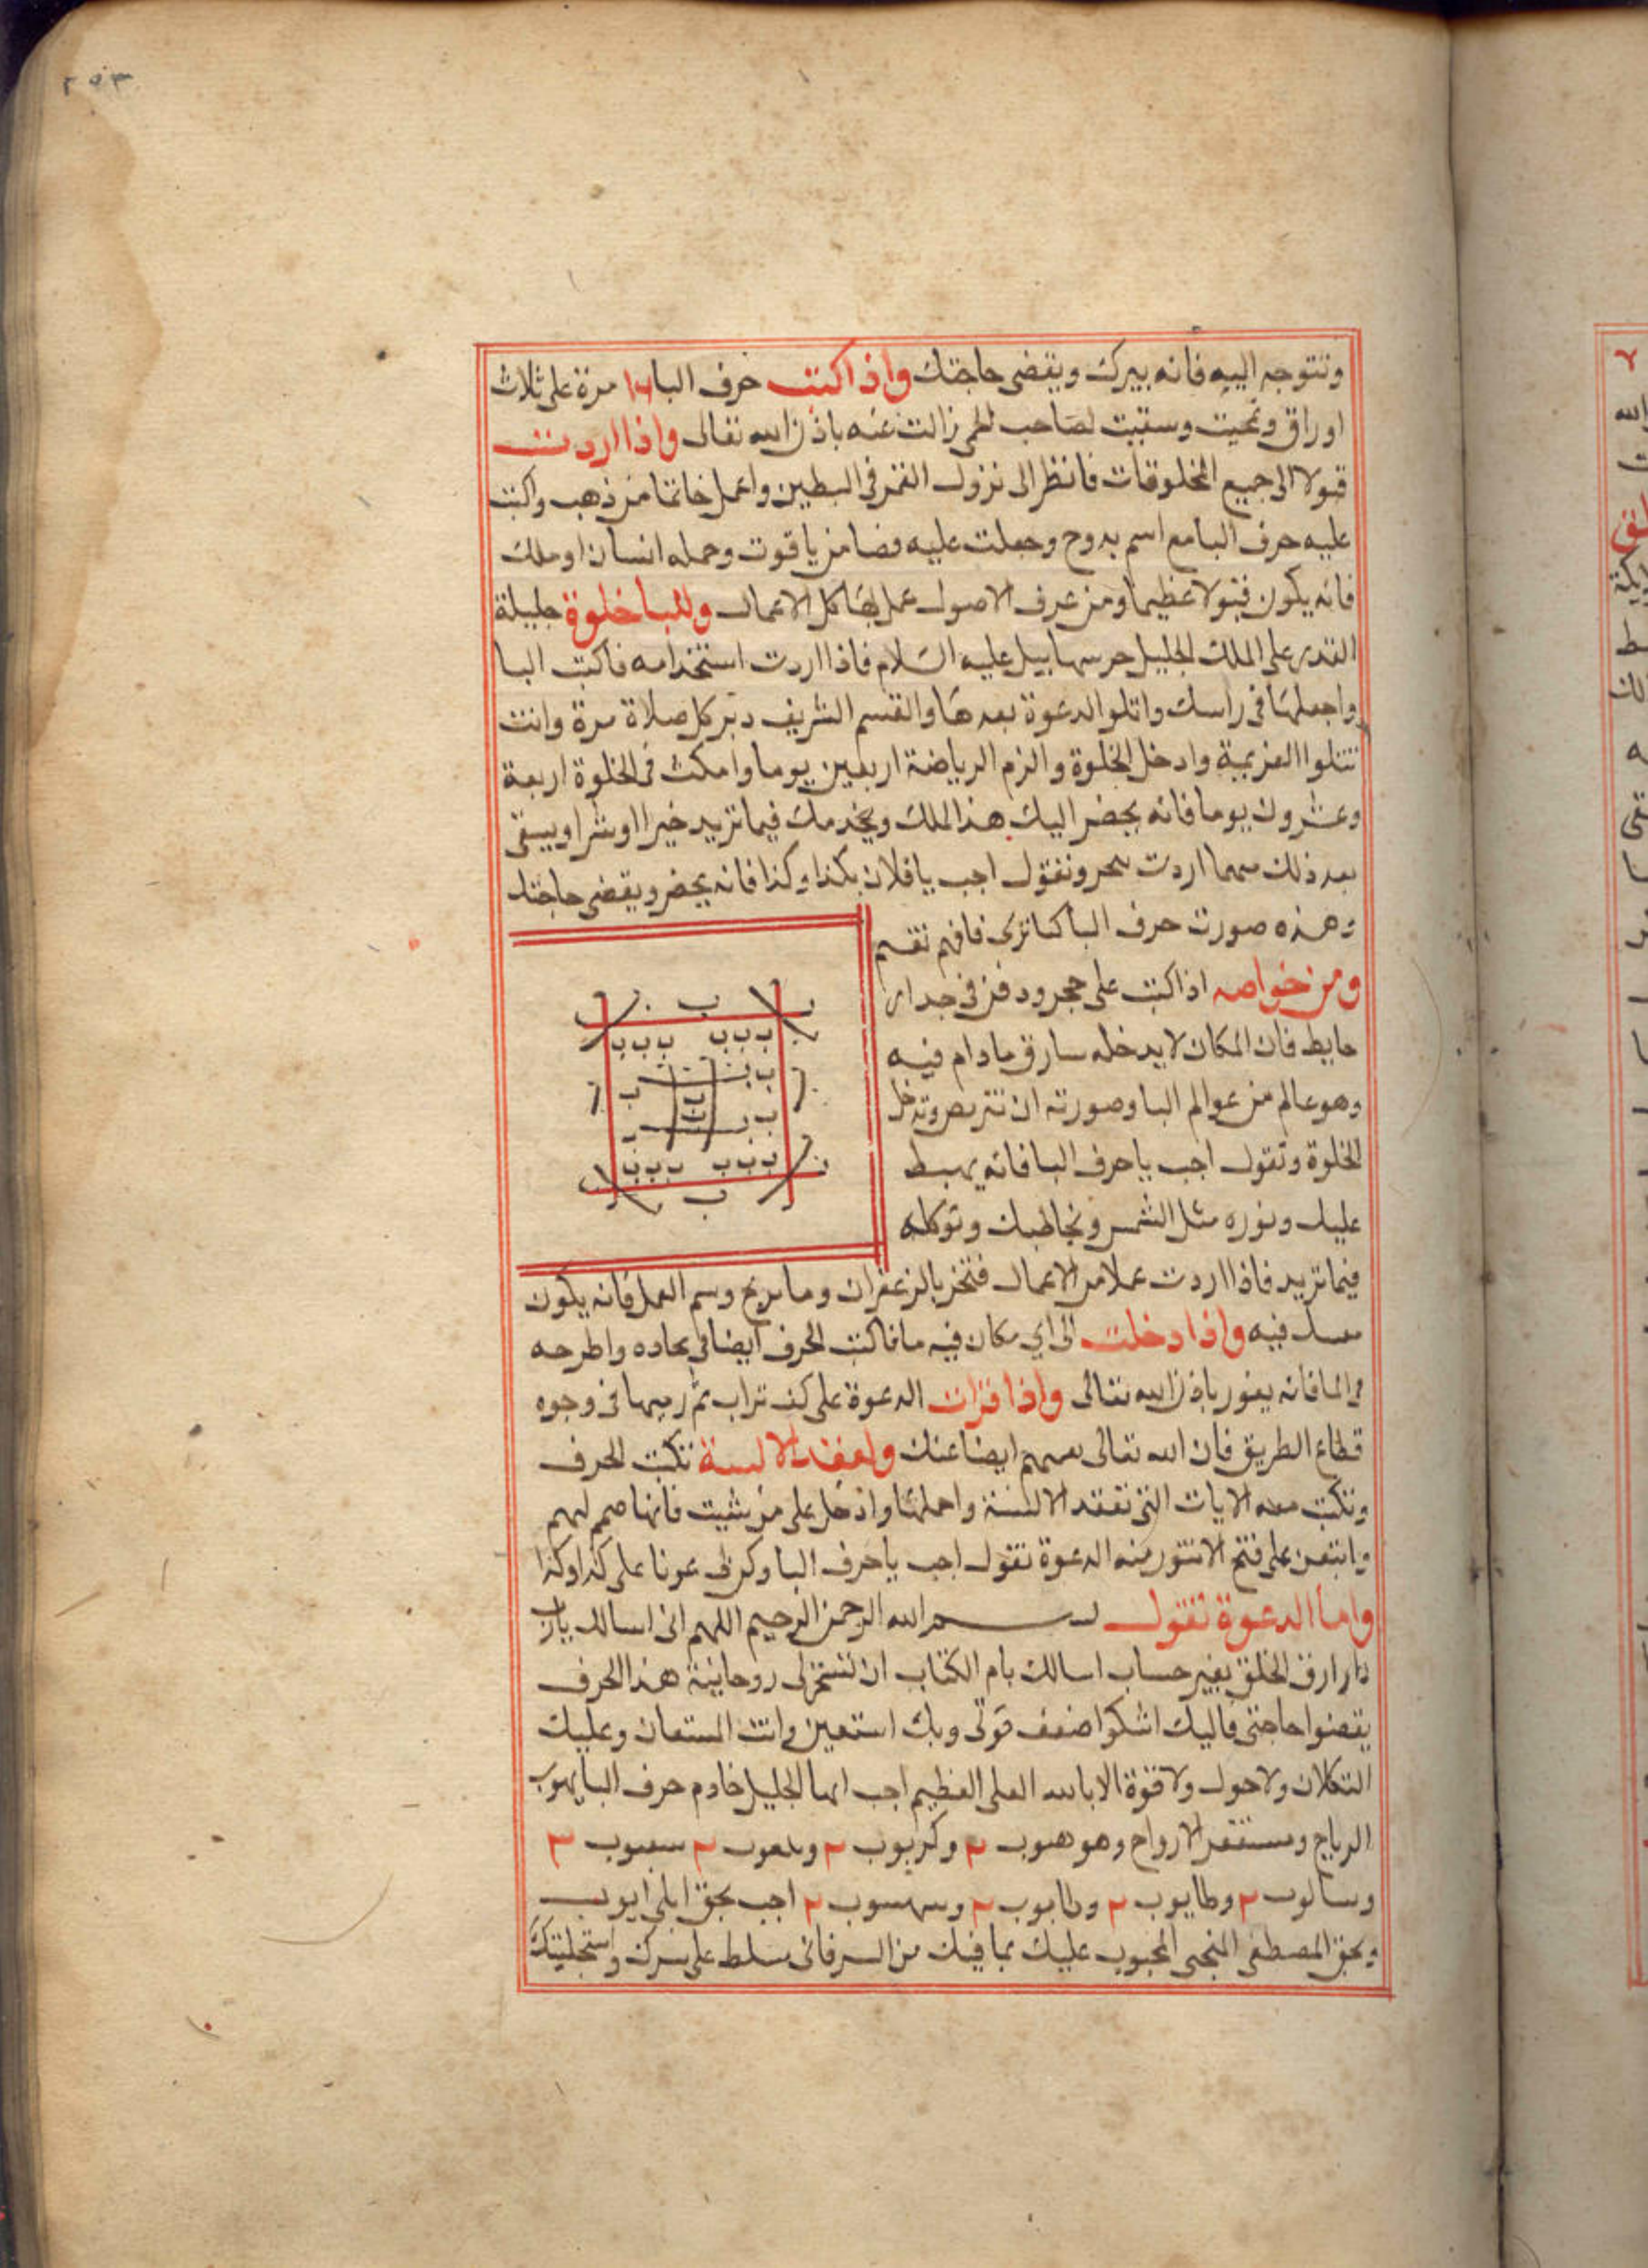 ٢٥٣
وتتوجه اليه فانه يبرك ويقضى حاجتك واذا كتبت حرف البا مرة على ثلاث
اوراق ومحيت وسقيت لصاحب الحمى زالت عنه باذن الله تعالى واذا اردت
قبولا الى جميع المخلوقات فانظر الى نزول القمر فى البطين واعمل خاتما من ذهب واكتب
عليه حرف البا مع اسم بدوح وجعلت عليه فصا من ياقوت وحمله انسان او ملك
فانه يكون قبولا عظيما ومن عرف الاصول عمل بها كل الاعمال وللبا خلوة جليلة
القدر على الملك الجليل عليه السلام فاذا اردت استخدامه فاكتب البا
واجعلها فى راسك واتلوا الدعوة بعدها والقسم الشريف دبر كل صلاة مرة وانت
تتلوا العزيمة وادخل الخلوة والزم الرياضة اربعين يوما وامكث فى الخلوة اربعة
وعشرون يوما فانه يحضر اليك هذا الملك ويخدمك فيما تريد خيرا او شرا ويبقى
بعد ذلك مهما اردت وتقول اجب يا فلان بكذا وكذا فانه يحضر ويقضى حاجتك
وهذه صورت حرف البا كما ترى فافهم تقسم
ومن خواصه اذا كتب على حجر ودفن فى جدار
حايط فان المكان لا يدخله سارق ما دام فيه
وهو عالم من عوالم البا وصورته ان
الخلوة وتقول اجب يا حرف البا فانه يهبط
عليك ونوره مثل الشمس ويخاطبك وتوكله
ب
ب ب ب ب ب ب
ب ب
ب ب
ب
ب ب
ب ب ب ب ب ب
ب
فيما تريد فاذا اردت عملا من الاعمال فتبخر بالزعفران وسم العمل فانه يكون
فيه واذا دخلت الى اي مكان فيه ما فاكتب الحرف ايضا فى واطرحه
فى الما فانه يغور باذن الله تعالى واذا قرات الدعوة على كف تراب ثم رميها فى وجوه
قطاع الطريق فان الله تعالى ايضا عنك ولعقد الالسنة تكتب الحرف
وتكتب معه الايات التى تعقد الالسنة واحملها وادخل على من شيت فانها
على فتح منه الدعوة تقول اجب يا حرف البا وكن لى عونا على كذا وكذا
واما الدعوة تقول بسم الله الرحمن الرحيم اللهم انى اسالك يا رب
يا رازق الخلق بغير حساب اسالك بام الكتاب ان تسخر لى روحانية هذا الحرف
يقضوا حاجتى فاليك اشكوا ضعف قوتى وبك استعين وانت المستعان وعليك
التكلان ولا حول ولا قوة الا بالله العلى العظيم اجب ايها الجليل خادم حرف البا
الرياح ومستقر الارواح وهو هبوب ٢ وكربوب ٢ ٢ ٣
٢ وطايوب ٢ وطابوب ٢ ٢ اجب بحق
وبحق المصطفى المحبوب عليك بما فيك من السر فانى سلط على سرك